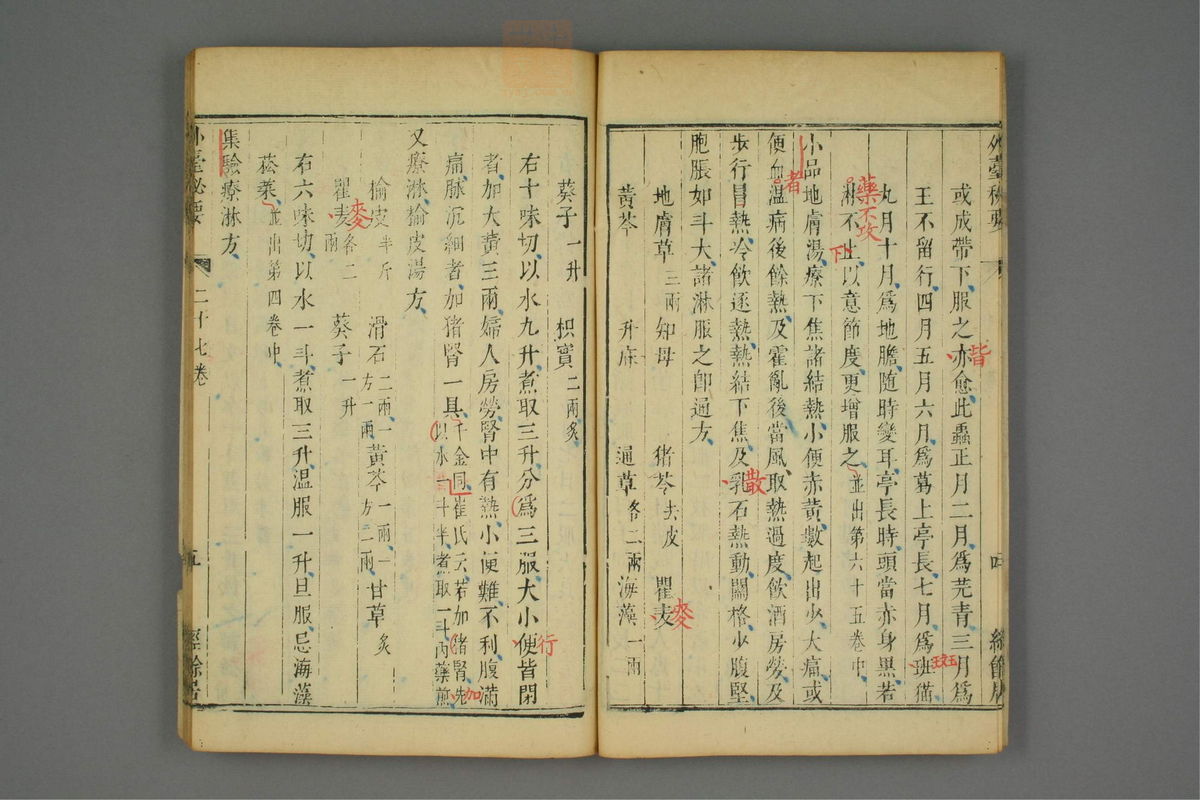 外臺秘要
或成帶下服之亦愈此蟲正月二月爲芫青三月爲
王不留行四月五月六月爲葛上亭長七月爲班猫
九月十月爲地膽隨時變耳亭長時頭當赤身黑若
藥不攻
淋不止以意節度更增服之並出第六十五卷中
小品地膚湯療下焦諸結熱小便赤黃數起出少大痛或
便血温病後餘熱及霍亂後當風取熱過度飲酒房勞及
步行冒熱冷飲逐熱熱結下焦及乳石熱動關格少腹堅
胞脹如斗大諸淋服之卽通方
地膚草三兩 知母 猪苓去皮 瞿麦
黃芩 升麻 通草各二兩 海藻一兩
皆
斑
下
者
散
麥
葵子一升 枳實二兩炙
右十味切以水九升煮取三升分爲三服大小便皆閉
者加大黃三兩婦人房勞腎中有熱小便難不利腹滿
痛脉沉細者加猪腎一具千金同崔氏云若加猪腎先
以水一斗半煮取一斗內藥煎
又療淋榆皮湯方
榆皮半斤 滑石二兩一方一兩 黃芩一兩一方二兩 甘草炙
瞿麦各二兩 葵子一升
右六味切以水一斗煮取三升温服一升旦服忌海藻
菘菜並出第四卷中
集驗療淋方
外臺秘要 二十七卷 五 經餘居
行
加
麥